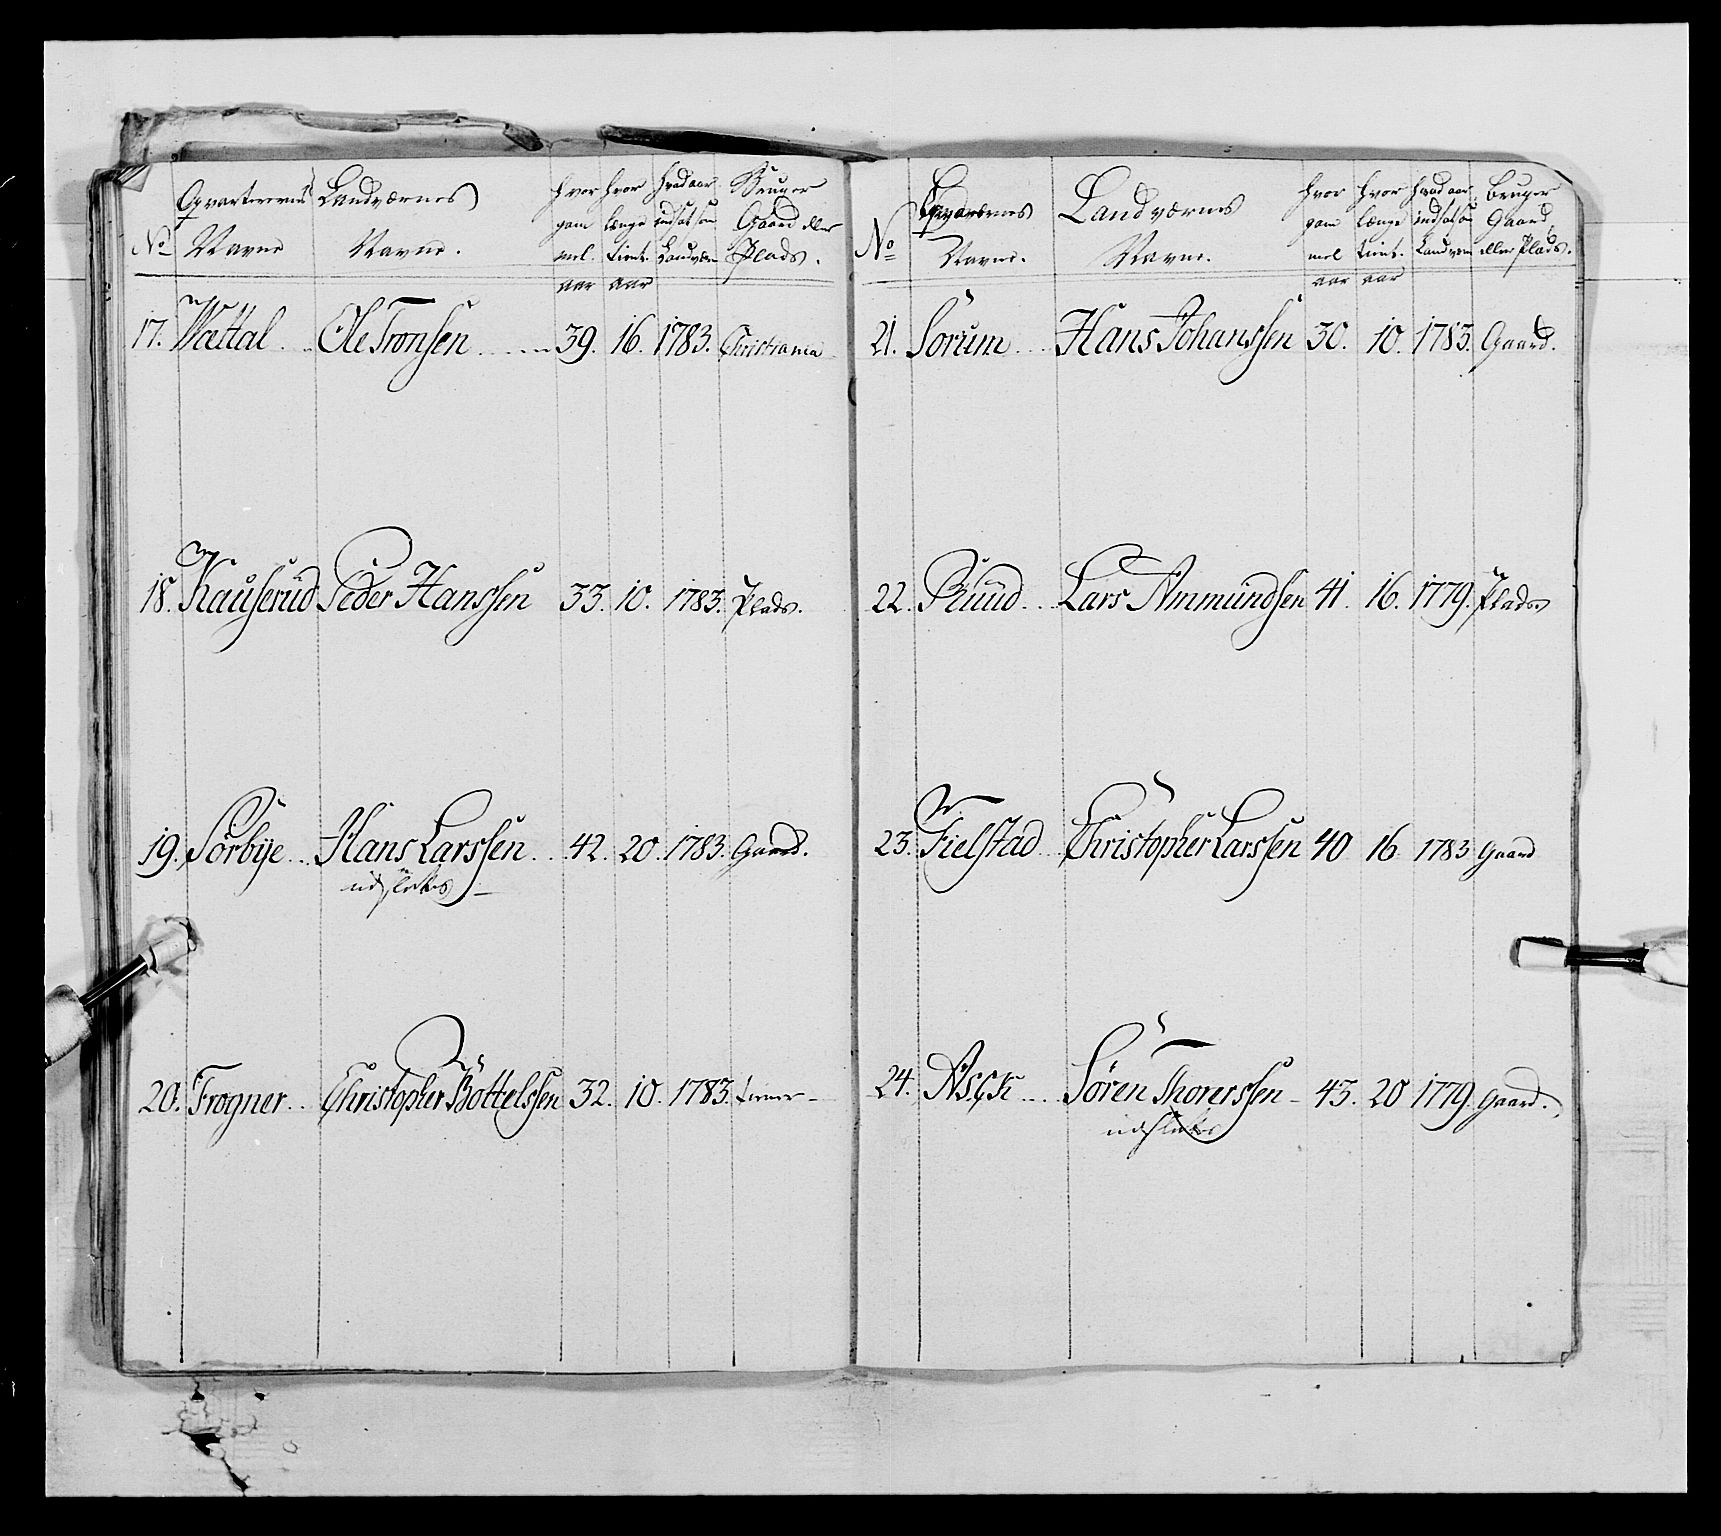 No Qvarterernes Navne Landværnes Navne. hvor gam mel. aar hvor længe tient. aar hvad aar indsat som Landværn Bruger Gaard eller Plads.
17. Wattal Ole Tronsen 39. 16. 1783. Christiania
18. Kauserud Peder Hanssen 33. 10. 1783. Plads.
19. Sørbye Hans Larssen 42. 20. 1783. Gaard.
udslettes
20. Frogner Christopher Bottelssen 32. 10. 1783. tiener
No Navne. Landværnes Navne. hvor gam mel aar hvor længe tient. aar hvad aar indsat som Landværn Bruger Gaard, eller Plads.
21. Sorum Hans Johanssen 30. 10. 1783. Gaard.
22. Ruud Lars Ammundsen 41. 16. 1779. Plads
23. Fielstad Christopher Larssen 40 16 1783 Gaard
24. Asck Sören Thorerssen 43. 20 1779. Gaard.
udslettes